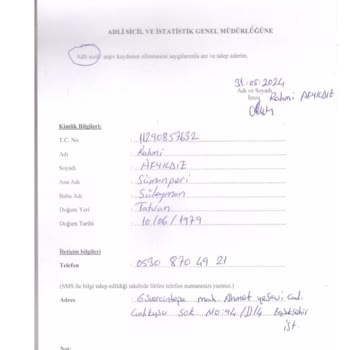 ADLİ SİCİL VE İSTATİSTİK GENEL MÜDÜRLÜĞÜNE
Adli sicil arşiv kaydımın silinmesini saygılarımla arz ve talep ederim.
31.05.2024
Adı ve Soyadı
İmza Rahmi AFYILDIZ
Kimlik Bilgileri:
T.C. No : 11290857632
Adı : Rahmi
Soyadı : AFYILDIZ
Ana Adı : Sümanperi
Baba Adı : Süleyman
Doğum Yeri : Tatvan
Doğum Tarihi : 10/06/1979
İletişim bilgileri
Telefon : 0530 870 49 21
(SMS ile bilgi talep edildiği takdirde lütfen telefon numaranızı yazınız.)
Adres : Güvercintepe mah. Ahmet yesevi Cad.
sok NO:94/D14 Başakşehir
İST
Not: